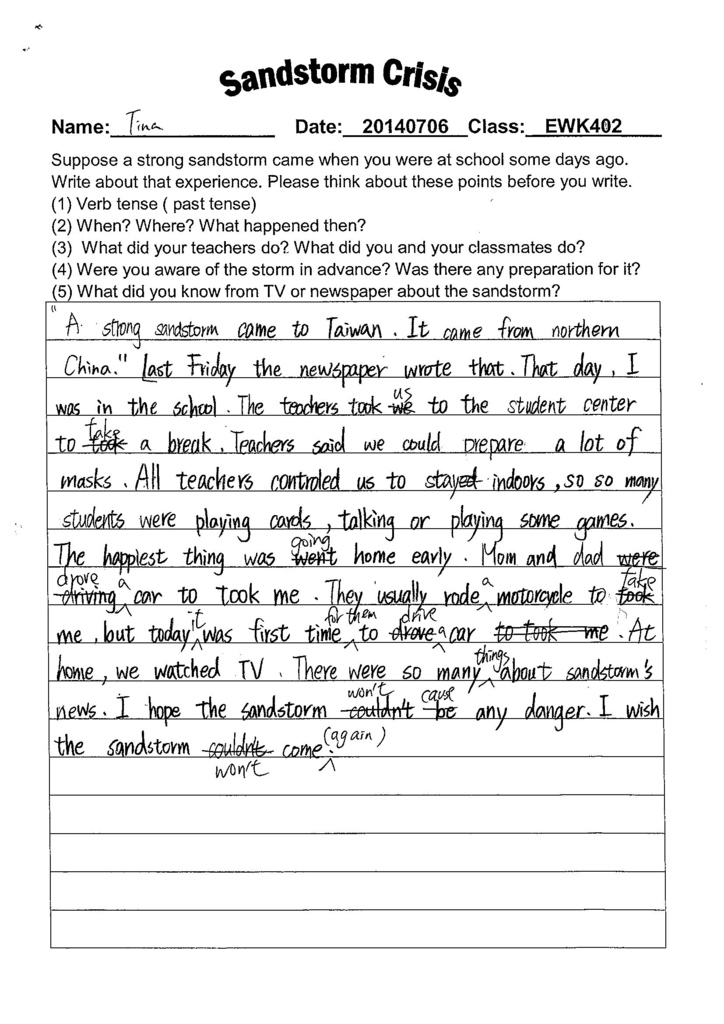 Sandstorm Crisis
Name: Tina Date: 20140706 Class: EWK402
Suppose a strong sandstorm came when you were at school some days ago.
Write about that experience. Please think about these points before you write.
(1) Verb tense ( past tense)
(2) When? Where? What happened then?
(3) What did your teachers do? What did you and your classmates do?
(4) Were you aware of the storm in advance? Was there any preparation for it?
(5) What did you know from TV or newspaper about the sandstorm?
"A strong sandstorm came to Taiwan. It came from northern
China." Last Friday the newspaper wrote that. That day, I
us
was in the school. The teachers took we to the student center
take
to took a break. Teachers said we could prepare a lot of
masks. All teachers controled us to stayed indoors, so so many
students were playing cards, talking or playing some games.
going
The happiest thing was went home early. Mom and dad were
drove a take
driving car to took me. They usually rode a motorcycle to took
it for them drive
me, but today was first time to drove a car to took me. At
things
home, we watched TV. There were so many about sandstorm's
won't cause
news. I hope the sandstorm couldn't be any danger. I wish
(again)
the sandstorm couldn't come.
won't